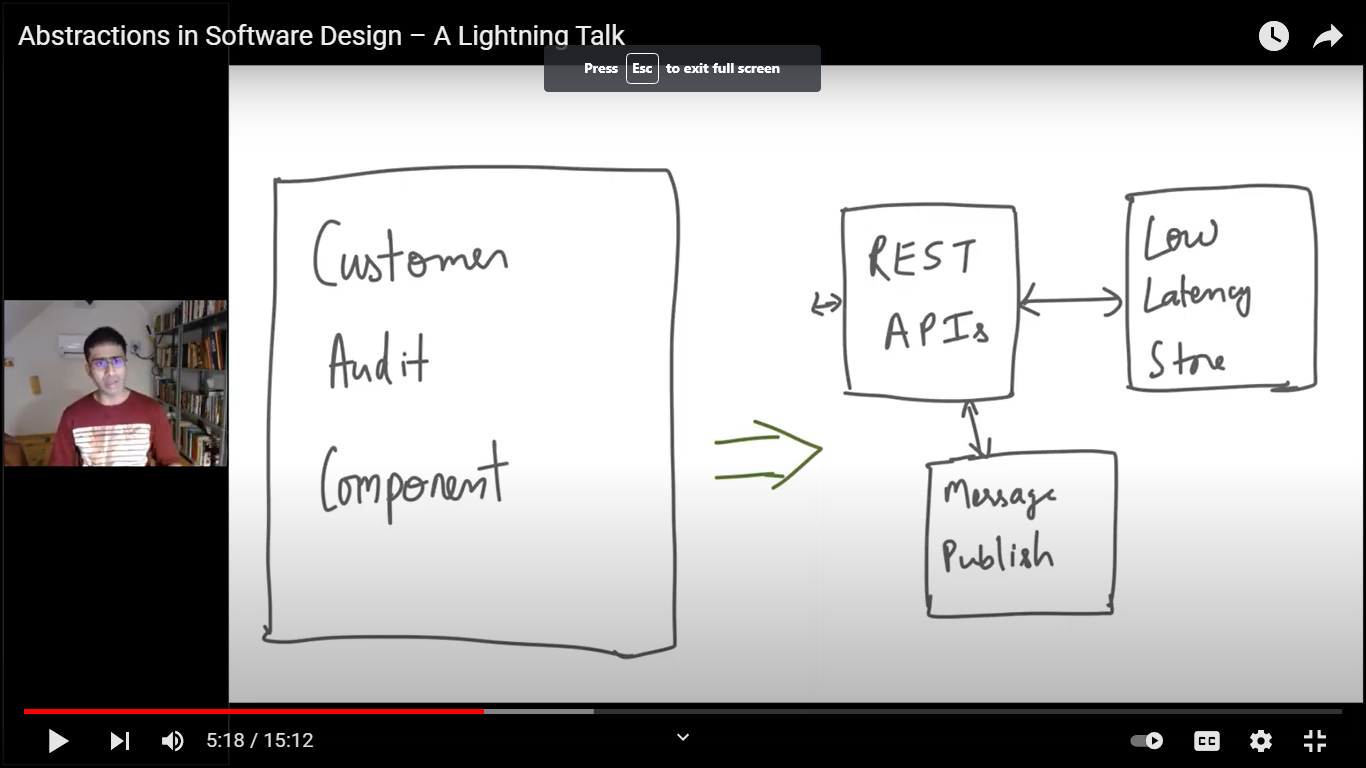 Abstractions in Software Design – A Lightning Talk
Press Esc to exit full screen
Customer
Audit
Component
REST
APIs
Low
Latency
Store
Message
Publish
5:18 / 15:12
CC